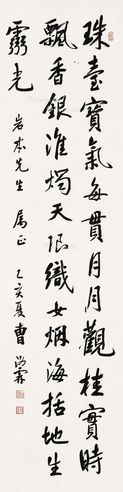 珠臺寶氣每貫月月觀桂實時
飄香銀淮燭天限織女烟海括地生
靈光
岩本先生 属正
乙亥夏 曹汝霖